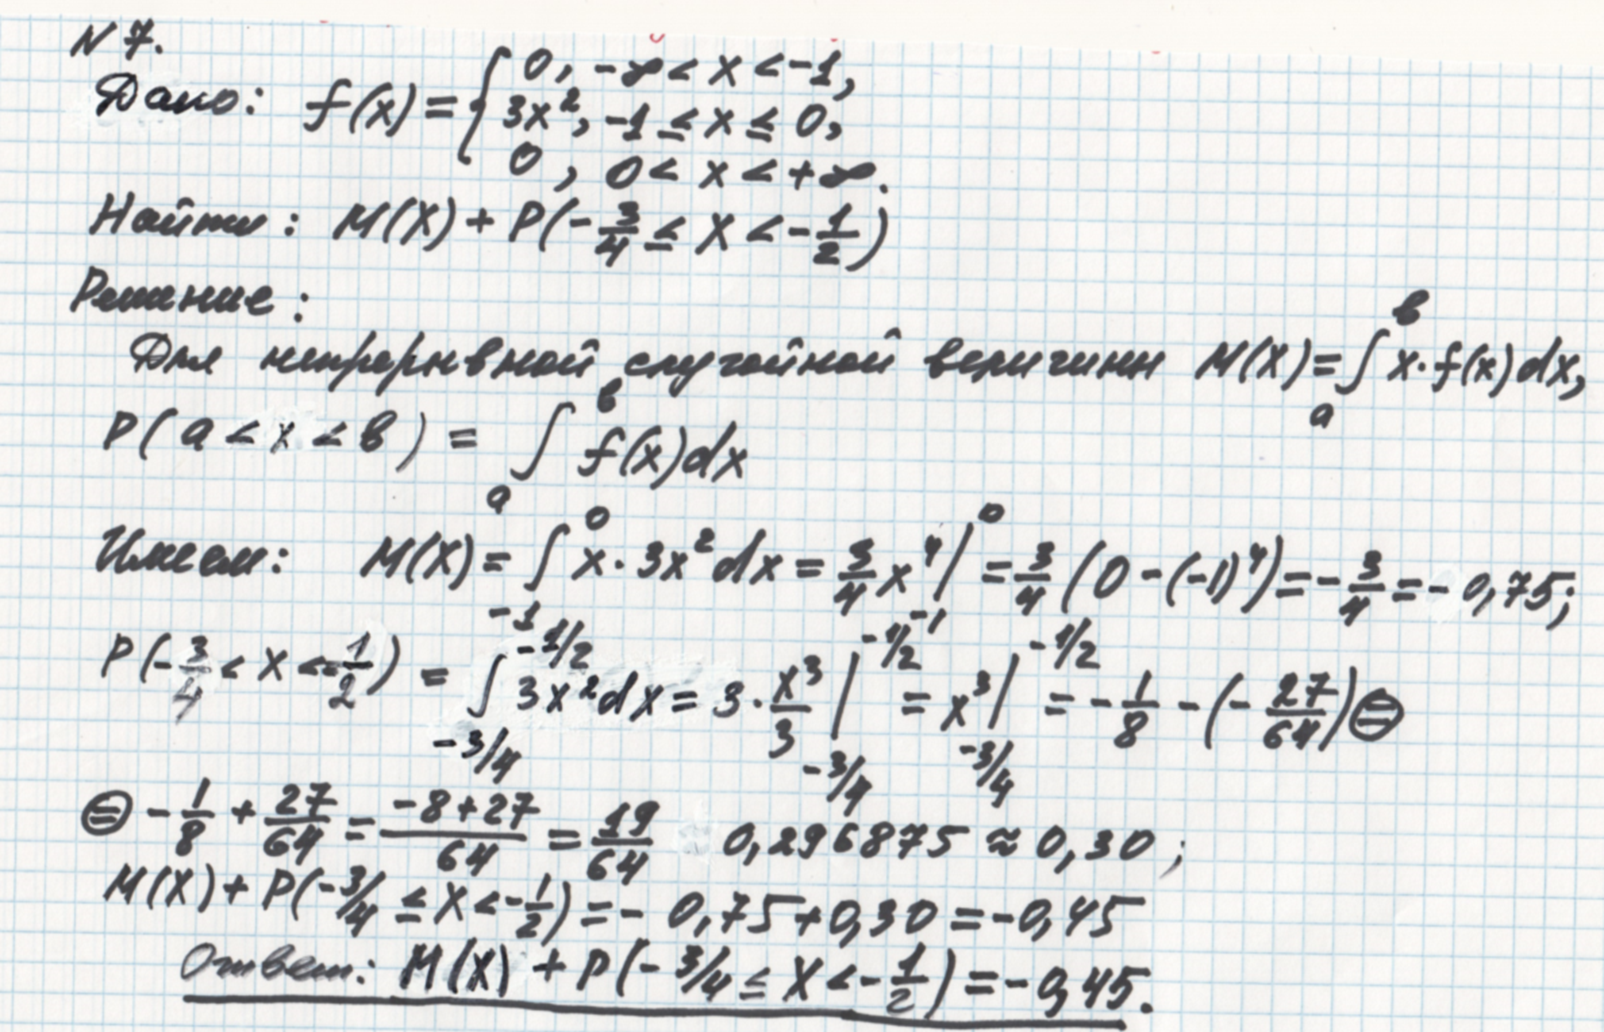 N 7.
Дано: f(x) = { 0, -∞ < x < -1,
3x², -1 ≤ x ≤ 0,
0, 0 < x < +∞.
Найти: M(X) + P(-3/4 ≤ X < -1/2)
Решение:
Для непрерывной случайной величины M(X) = ∫ₐᵇ x·f(x)dx,
P(a < x < b) = ∫ₐᵇ f(x)dx
Имеем: M(X) = ∫₋₁⁰ x·3x²dx = 3/4 x⁴|₋₁⁰ = 3/4 (0 - (-1)⁴) = -3/4 = -0,75;
P(-3/4 < X < -1/2) = ∫_{-3/4}^{-1/2} 3x²dx = 3·x³/3 |_{-3/4}^{-1/2} = x³|_{-3/4}^{-1/2} = -1/8 - (-27/64) ⊜
⊜ -1/8 + 27/64 = (-8+27)/64 = 19/64 0,296875 ≈ 0,30;
M(X) + P(-3/4 ≤ X < -1/2) = -0,75+0,30 = -0,45
Ответ: M(X) + P(-3/4 ≤ X < -1/2) = -0,45.